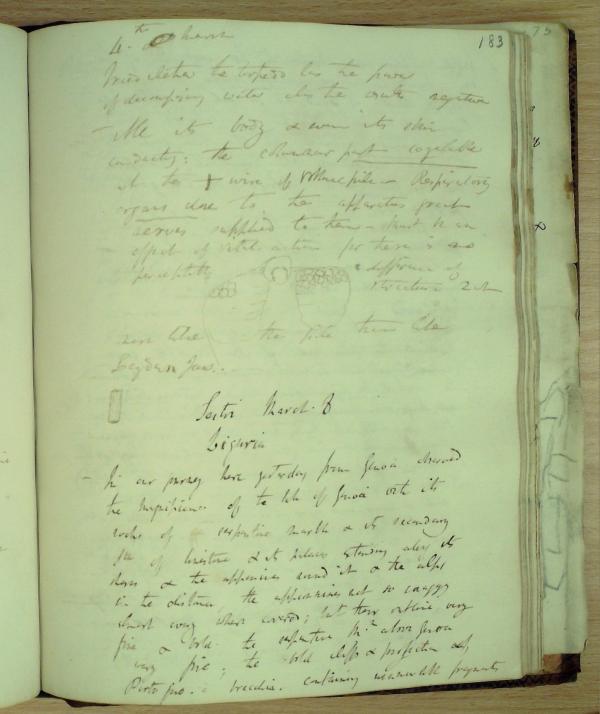 183
75
4.th March
Tried whether the torpedo has the power
of decomposing water also the results negative
- All its body & even its skin
conducting; the columnar part
at the + wire of Voltaic pile - Respiratory
organs close to the apparatus great
nerves supplied to them - must be an
effect of vital action for there is no
perceptible
difference of
structure
more like the pile than like
Leyden Jar.
Sestri March. 8
Liguria
- In our journey here yesterday from Genoa observed
the magnificence of the of Genoa with its
rocks of serpentine marble & its secondary
of limestone & its palaces extending along its
shores & the appenines round it & the alps
in the distance, the appennines not so craggy
almost every where covered; but their outline very
fine & bold. the serpentine Mn above Genoa
very fine; the bold cliffs & projection at
Porto fino. breccia. containing innumerable fragments